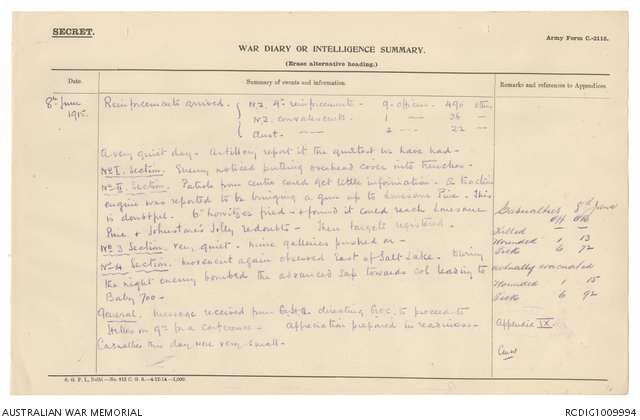 SECRET.
Army Form C.-2118.
WAR DIARY OR INTELLIGENCE SUMMARY.
(Erase alternative heading.)
Date.
Summary of events and information.
Remarks and references to Appendices
8th June
1915.
Reinforcements arrived - N.Z. 4th reinforcements - 9 officers - 490 others
N.Z. convalescents 1 — 36 —
Aust. — 2 — 22 —
A very quiet day - Artillery report it the quietest we have had -
No I. Section. Enemy noticed putting overhead cover into trenches -
No II Section. Patrols from centre could get little information - A traction
engine was reported to be bringing a gun up to Lonesome Pine. This
is doubtful. 6" howitzer fired - & found it could reach Lonesome
Pine & Johnstone's Jolly redoubts - Then targets registered.
No 3 Section. Very quiet - mine galleries pushed on -
No 4 Section. Movement again observed East of Salt Lake. During
the night enemy bombed the advanced sap towards col leading to
Baby 700 -
General. Message received from G.H.Q. directing G.O.C. to proceed to
Helles on 9th for a conference - Appreciation prepared in readiness -
Casualties this day were very small -
Casualties 8th June
Off O.R.
Killed — —
Wounded 1 13
Sick 6 92
Actually evacuated
Wounded 1 15
Sick 6 92
Appendix IX.
S. G. P. I., Delhi—No. 813 C. G. S.—4-12-14—1,000.
AUSTRALIAN WAR MEMORIAL
RCDIG1009994